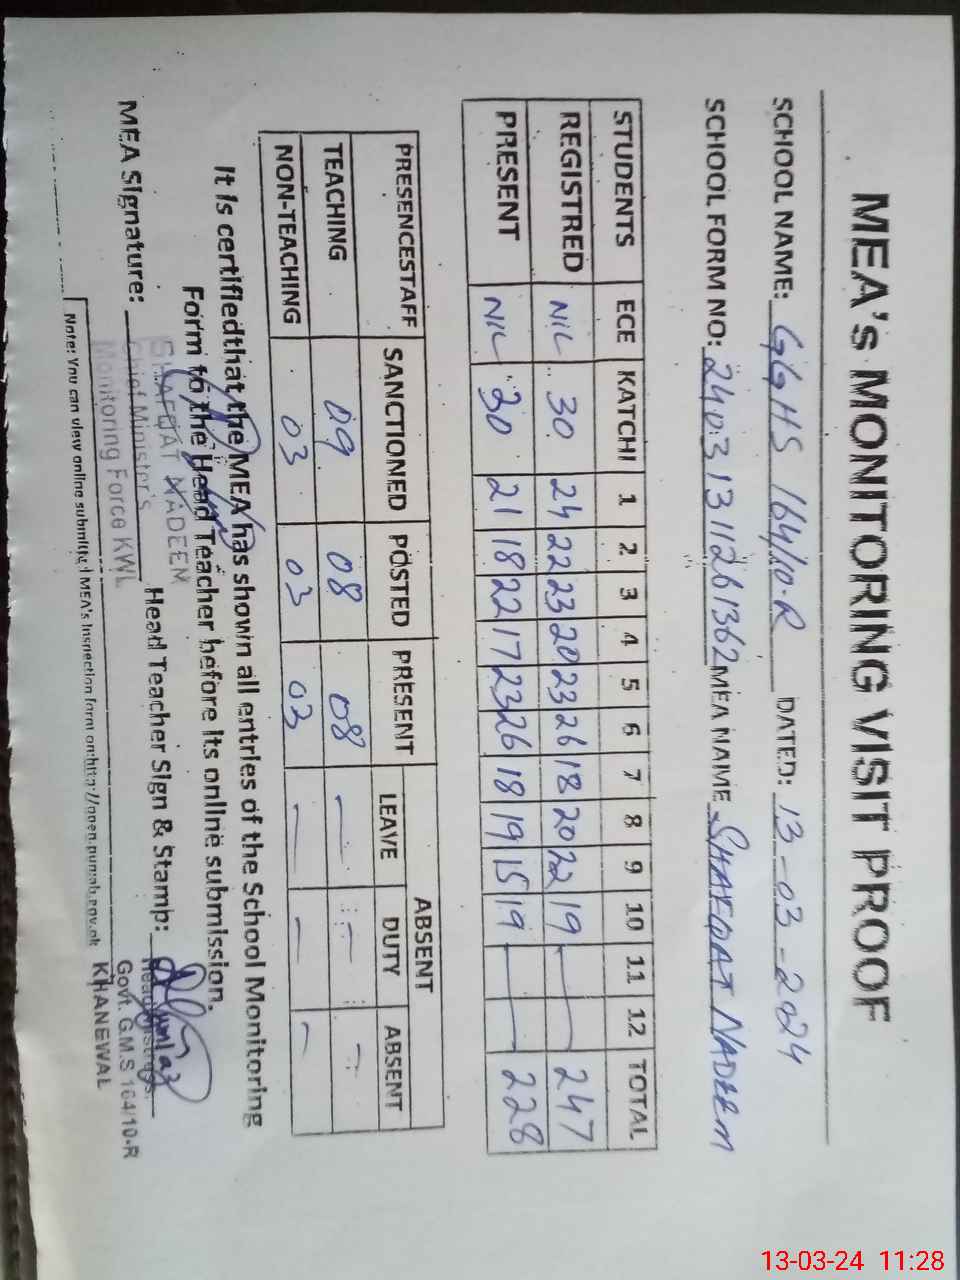 MEA's MONITORING VISIT PROOF
SCHOOL NAME: GGHS 164/10-R DATED: 13-03-2024
SCHOOL FORM NO: 24031311261362 MEA NAME SHAFQAT NADEEM
STUDENTS ECE KATCHI 1 2 3 4 5 6 7 8 9 10 11 12 TOTAL
REGISTRED NIL 30 24 22 23 20 23 26 18 20 22 19 247
PRESENT NIL 30 21 18 22 17 23 26 18 19 15 19 228
ABSENT
PRESENCESTAFF SANCTIONED POSTED PRESENT LEAVE DUTY ABSENT
TEACHING 09 08 08 - - -
NON-TEACHING 03 03 03 - - -
It is certifiedthat the MEA has shown all entries of the School Monitoring
Form to the Head Teacher before its online submission.
SHAFQAT NADEEM
MEA Signature: Head Teacher Sign & Stamp:
Chief Minister's
Monitoring Force KWL
Govt. G.M.S 164/10-R
KHANEWAL
Note: You can view online submitted MEA's Inspection form on:http://open.punjab.gov.pk
13-03-24 11:28